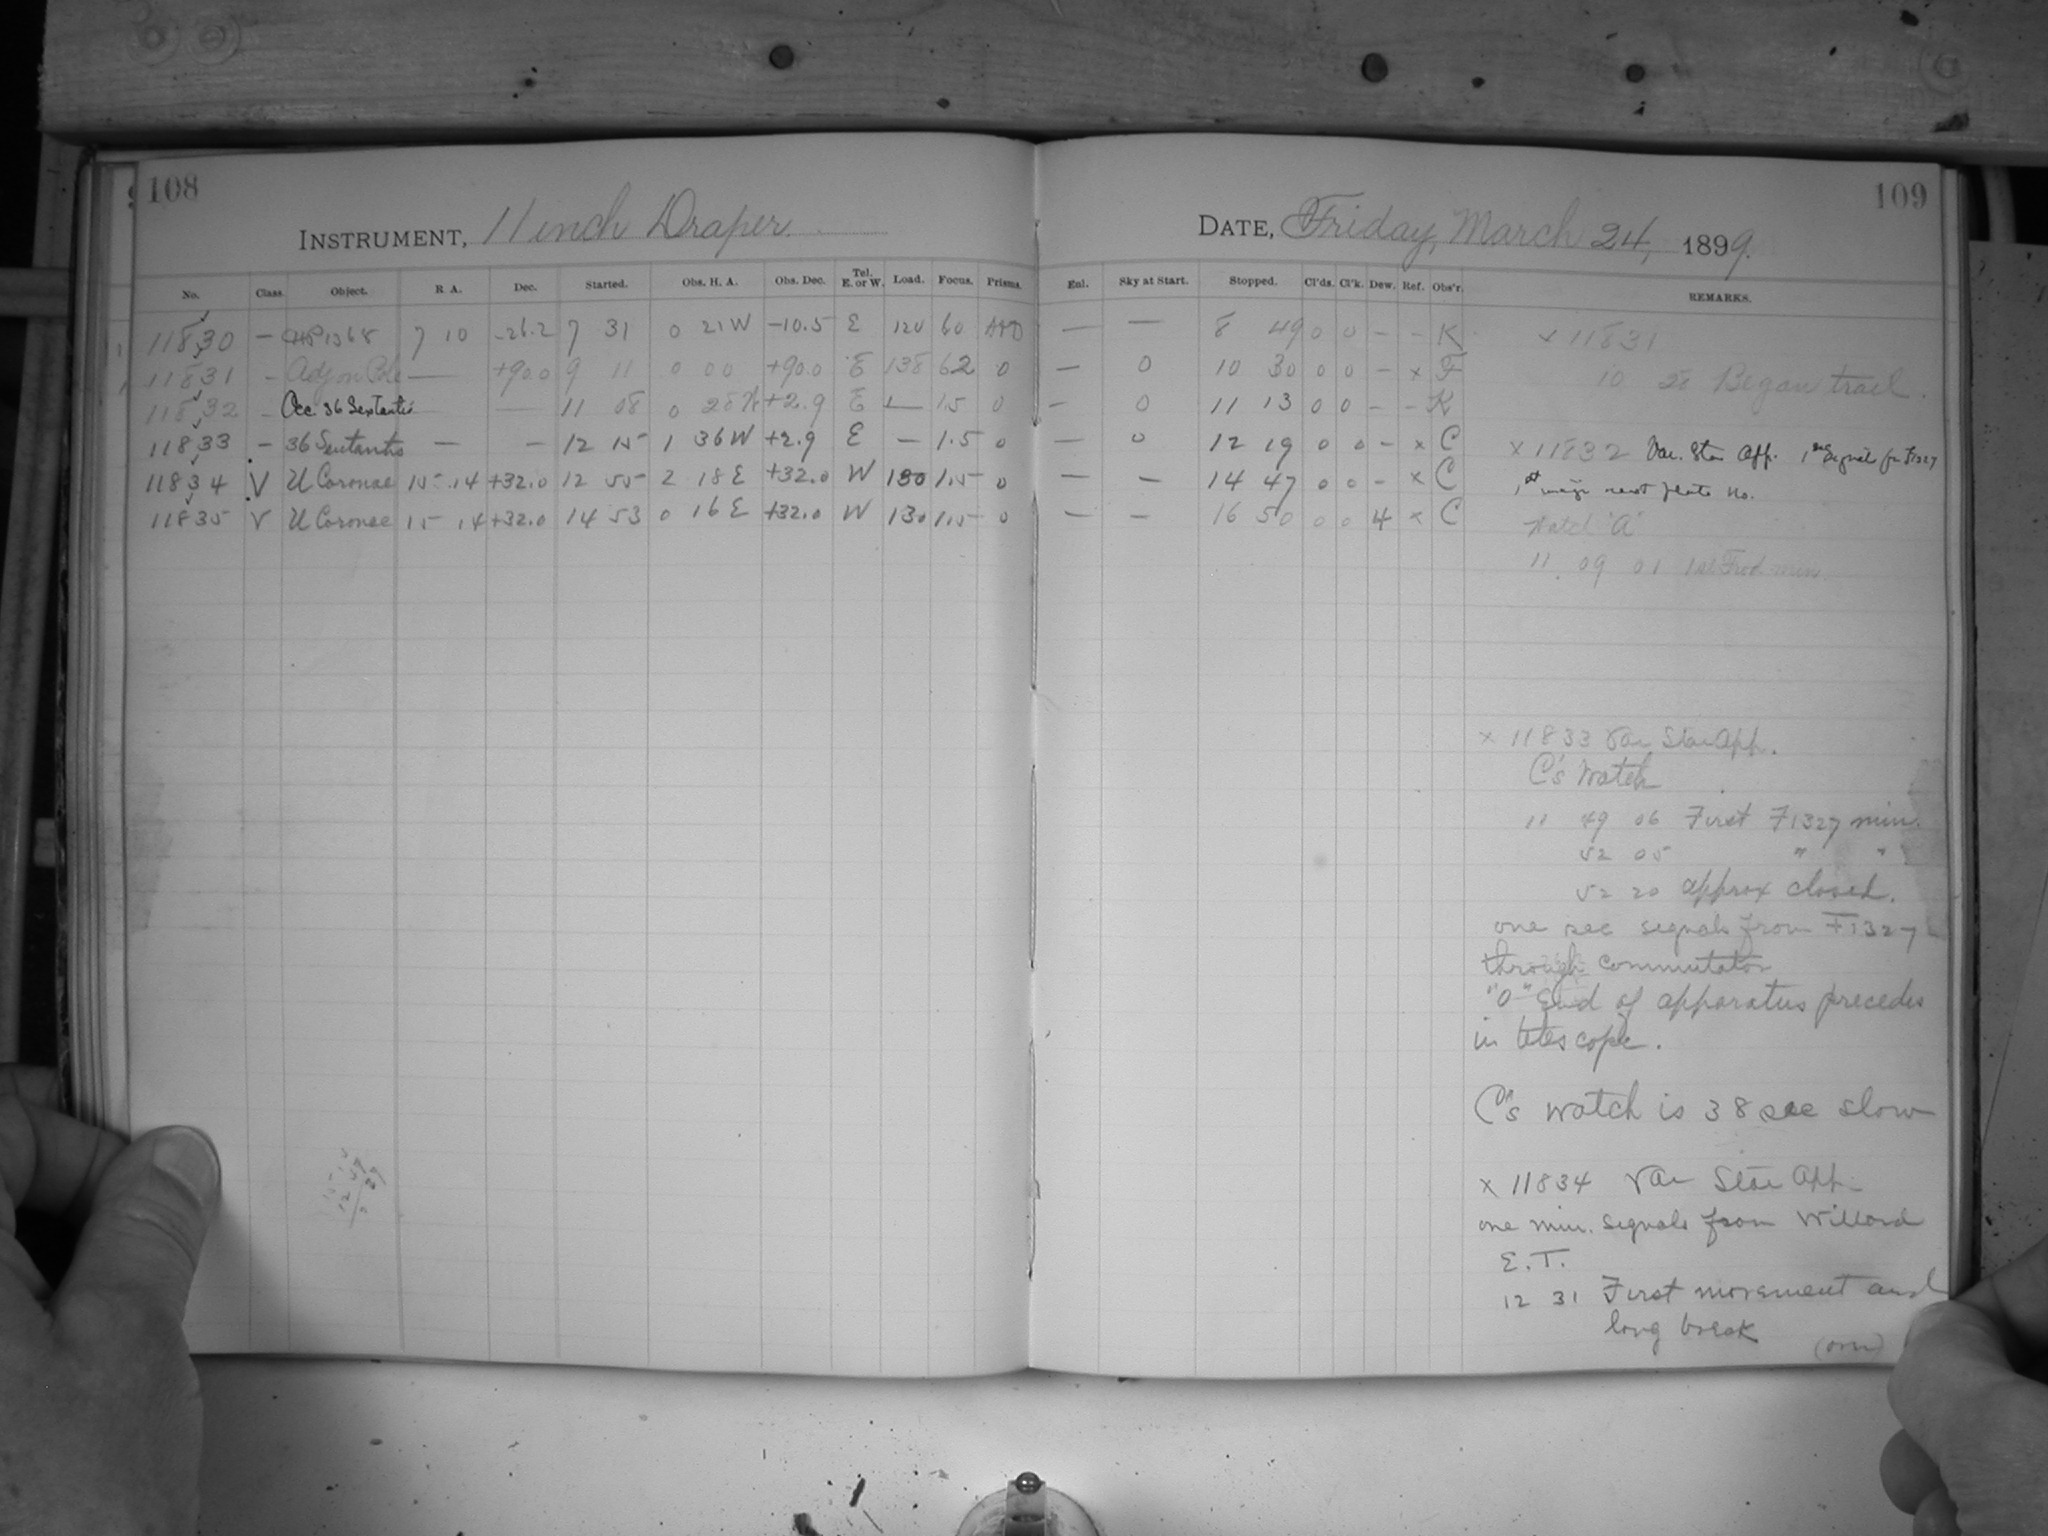 108
109
INSTRUMENT, 11 inch Draper
DATE, Friday, March 24, 1899.
No. Class. Object. R A. Dec. Started. Obs. H. A. Obs. Dec. Tel. E. or W. Load. Focus. Prisms. Enl. Sky at Start. Stopped. Cl'ds. Cl'k. Dew. Ref. Obs'r. REMARKS.
11830 — 1368 7 10 -26.2 7 31 0 21 W -10.5 E 120 60 — — 8 49 0 0 - - K
11831 - Adj on Pole — +90.0 9 11 0 00 +90.0 E 138 62 0 — 0 10 30 0 0 - x F
11832 - Occ. 36 Sextantis — 11 08 0 28 +2.9 E — 1.5 0 — 0 11 13 0 0 - - K
11833 — 36 Sextantis — — 12 15 1 36 W +2.9 E — 1.5 0 — 0 12 19 0 0 - x C
11834 V U Coronae 15 14 +32.0 12 55 2 18 E +32.0 W 130 1.5 0 — — 14 47 0 0 - x C
11835 V U Coronae 15 14 +32.0 14 53 0 16 E +32.0 W 130 1.5 0 — — 16 50 0 0 4 x C
x 11831
10 28 Began trail.
x 11832 Var. Star App. 1 sec signals fr F1327
1st next plate No.
Watch "A"
11 09 01 1st Frod min.
x 11833 Var Star App.
C's Watch
11 49 06 First F1327 min.
52 05 " "
52 20 approx closed.
one sec signals from F1327
through commutator
"0" End of apparatus precedes
in telescope.
C's watch is 38 sec slow
x 11834 Var Star App.
one min. signals from Willard
E. T.
12 31 First movement and
long break
(over)